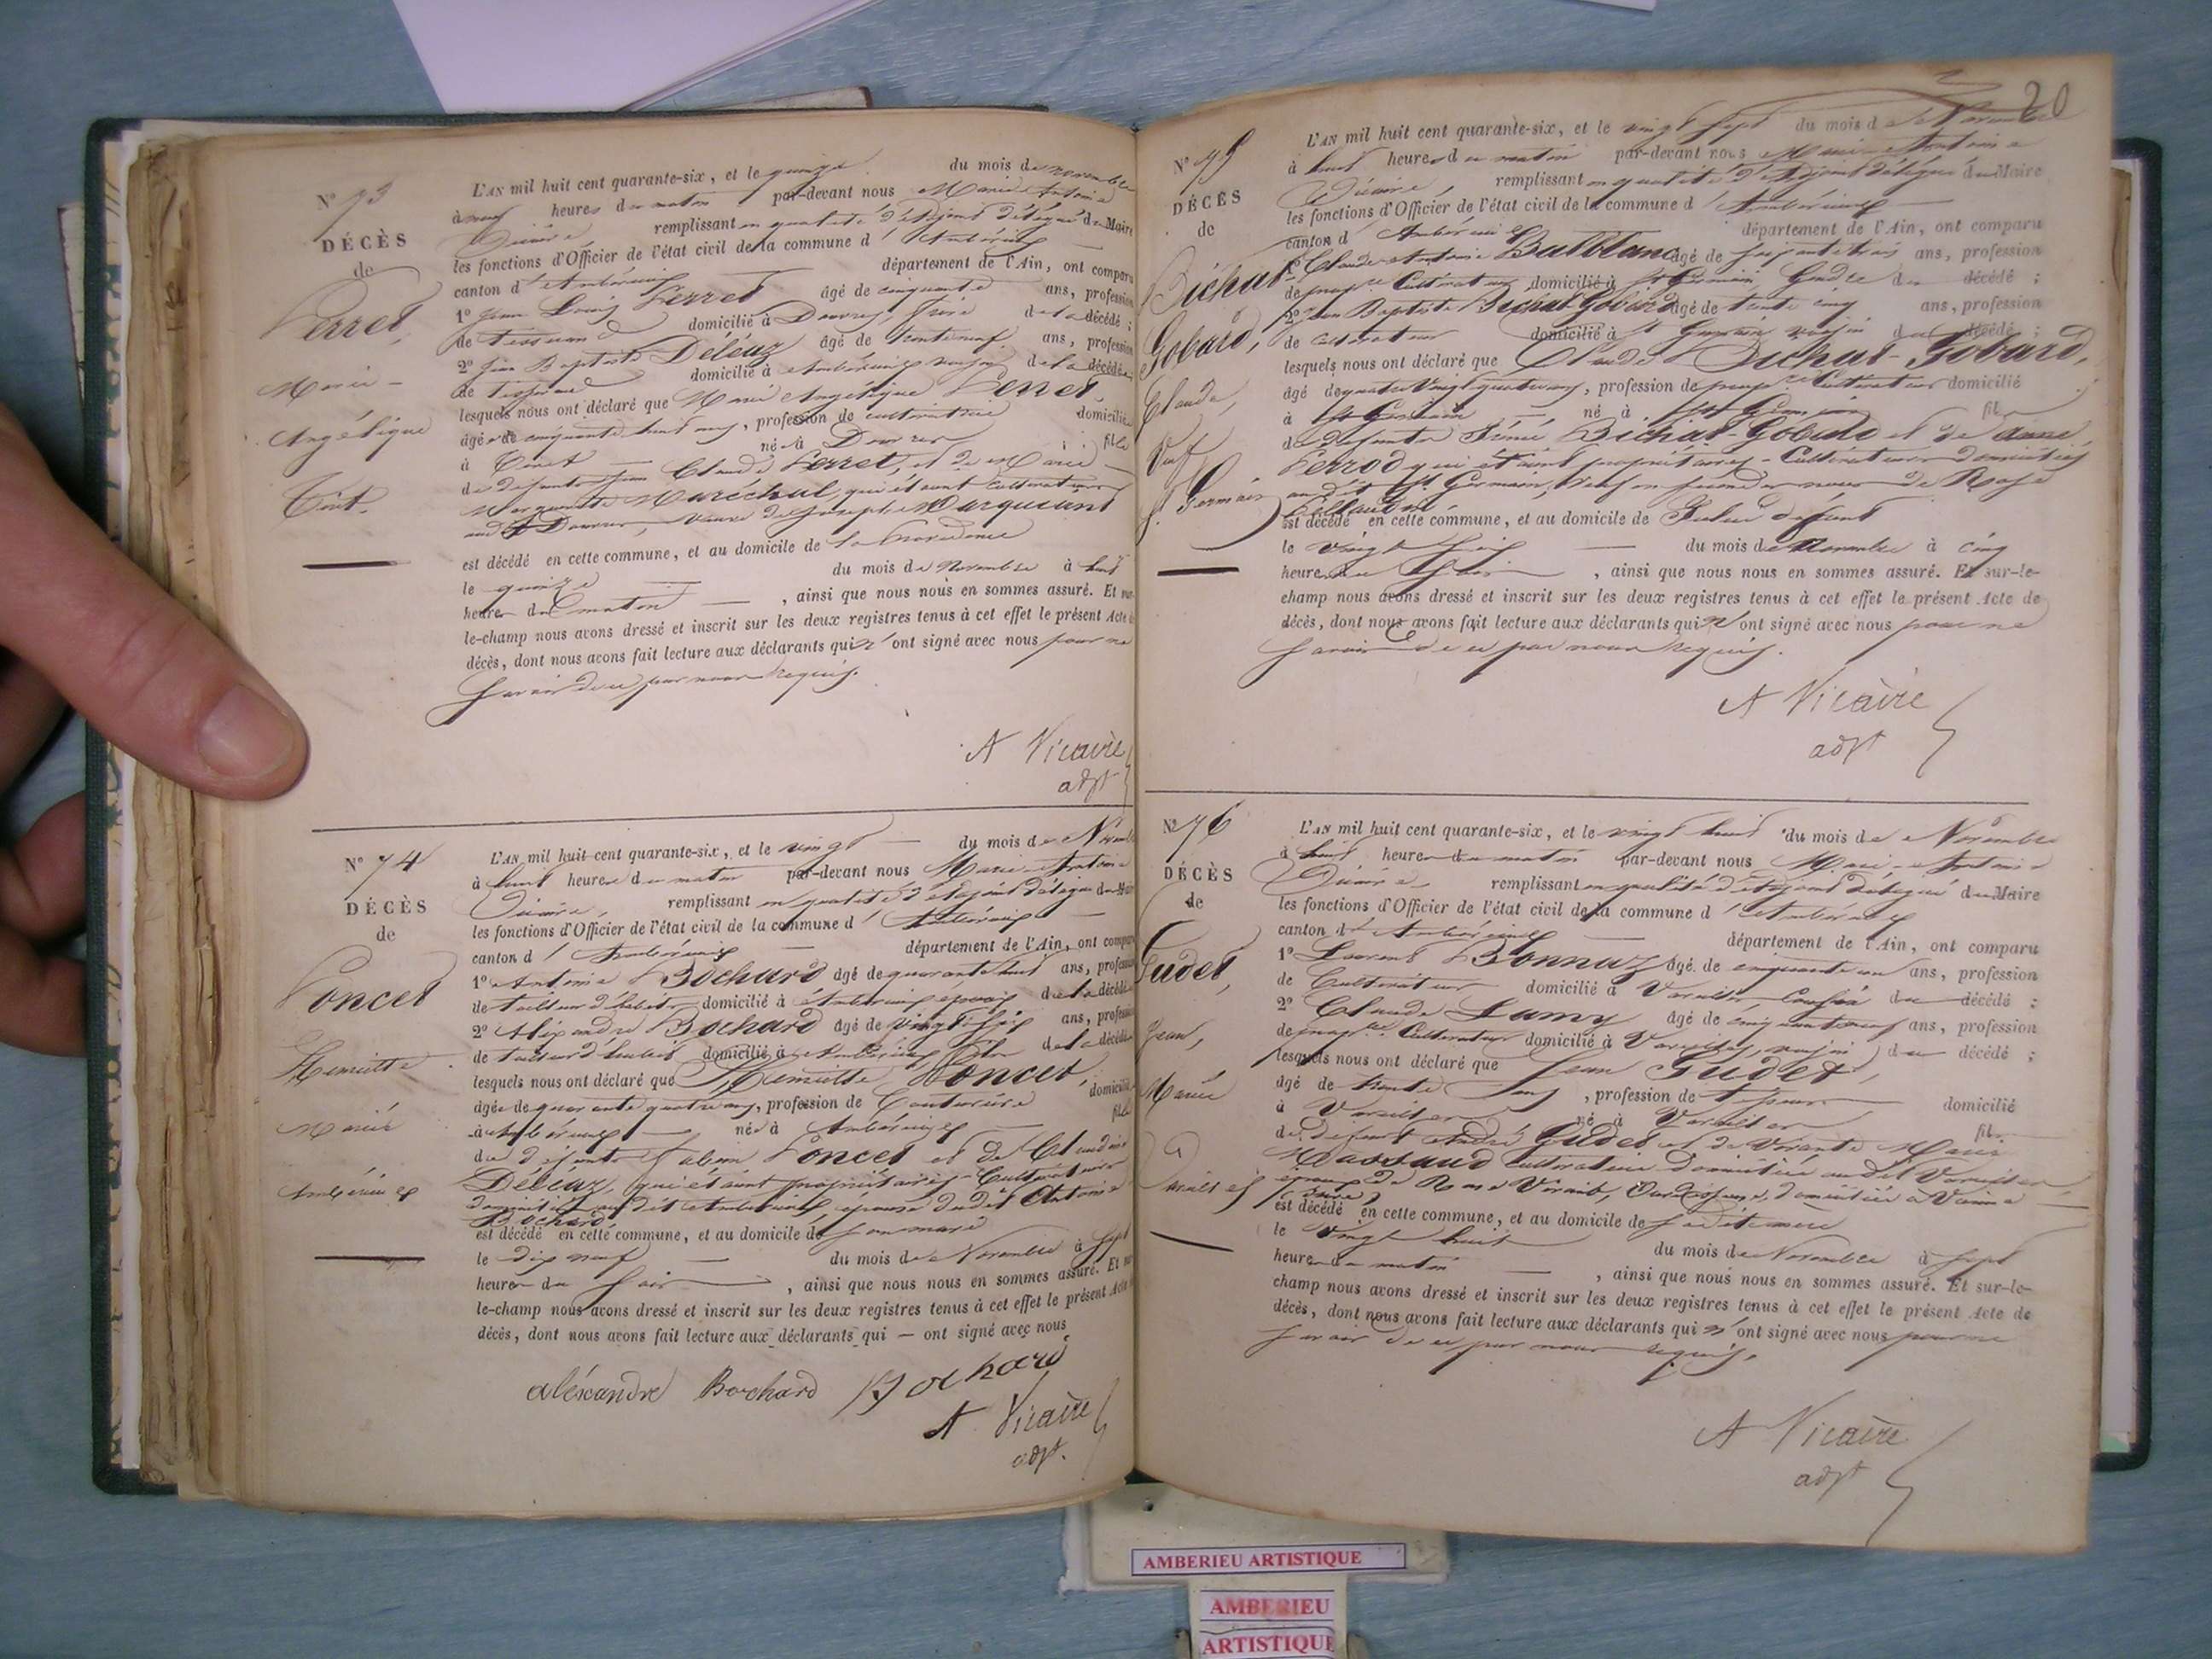 N° 73
DÉCÈS
de
Perret,
Marie-
Angélique
Tiret.
L'AN mil huit cent quarante-six, et le quinze du mois de novembre
à neuf heures du matin par-devant nous Marie-Antoine
Vicaire remplissant en qualité d'Adjoint délégué du Maire
les fonctions d'Officier de l'état civil de la commune d'Ambérieux
canton d'Ambérieux département de l'Ain, ont comparu
1° Jean Louis Perret âgé de cinquante ans, profession
de tisserand domicilié à Douvres, frère de la décédé ;
2° Jean Baptiste Déléaz âgé de trente neuf ans, profession
de domicilié à Ambérieux voisin de la décédée
lesquels nous ont déclaré que Marie Angélique Perret,
âgée de cinquante huit ans, profession de cultivatrice domicilié
à Tiret née à Douvres fille
de défunts Jean Claude Perret, et de Marie
Marguerite Maréchal, qui étaient cultivateurs
audit Douvres, veuve de Joseph Marquisant
est décédé en cette commune, et au domicile de la Providence
le quinze du mois de Novembre à huit
heures du matin, ainsi que nous nous en sommes assuré. Et sur-
le-champ nous avons dressé et inscrit sur les deux registres tenus à cet effet le présent Acte de
décès, dont nous avons fait lecture aux déclarants qui n'ont signé avec nous pour ne
savoir de ce par nous requis.
A Vicaire
adjt
N° 74
DÉCÈS
de
Poncet
Henriette
Mariée
Ambérieux
L'AN mil huit cent quarante-six, et le vingt du mois de Novembre
à huit heures du matin par-devant nous Marie-Antoine
Vicaire, remplissant en qualité d'Adjoint délégué du Maire
les fonctions d'Officier de l'état civil de la commune d'Ambérieux
canton d'Ambérieux département de l'Ain, ont comparu
1° Antoine Bochard âgé de quarante huit ans, profession
de tailleur d'habits domicilié à Ambérieux époux de la décédée
2° Alexandre Bochard âgé de vingt six ans, profession
de tailleur d'habits domicilié à Ambérieux fils de la décédée
lesquels nous ont déclaré que Henriette Poncet,
âgée de quarante quatre ans, profession de Couturière domicilié
à Ambérieux née à Ambérieux fille
de défunts Poncet et de Claudine
Déléaz, qui étaient propriétaires-Cultivateurs
domiciliés audit Ambérieux, épouse dudit Antoine
Bochard
est décédé en cette commune, et au domicile de son mari
le dix neuf du mois de Novembre à sept
heures du soir, ainsi que nous nous en sommes assuré. Et sur-
le-champ nous avons dressé et inscrit sur les deux registres tenus à cet effet le présent Acte de
décès, dont nous avons fait lecture aux déclarants qui — ont signé avec nous
aléxandre Bochard Bochard
A Vicaire
adjt.
20
N° 75
DÉCÈS
de
Bichat
Gobard,
Claude,
Veuf
St Germain
L'AN mil huit cent quarante-six, et le vingt sept du mois de Novembre
à huit heures du matin par-devant nous Marie-Antoine
Vicaire, remplissant en qualité d'Adjoint délégué du Maire
les fonctions d'Officier de l'état civil de la commune d'Ambérieux
canton d'Ambérieux département de l'Ain, ont comparu
1° Claude Antoine Balblanc âgé de soixante trois ans, profession
de propre Cultivateur domicilié à St Germain, Gendre du décédé ;
2° Jean Baptiste Bichat Gobard âgé de trente cinq ans, profession
de cultivateur domicilié à St Germain voisin du décédé ;
lesquels nous ont déclaré que Claude Bichat-Gobard,
âgé de quatre vingt quatre ans, profession de propre Cultivateur domicilié
à St Germain né à St Germain fils
de défunts Bichat-Gobard et de Anne
Perrod qui étaient propriétaires-Cultivateurs domiciliés
audit St Germain, veuf en premières noces de Rose
est décédé en cette commune, et au domicile de défunt
le vingt six du mois de Novembre à cinq
heures du soir, ainsi que nous nous en sommes assuré. Et sur-le-
champ nous avons dressé et inscrit sur les deux registres tenus à cet effet le présent Acte de
décès, dont nous avons fait lecture aux déclarants qui n'ont signé avec nous pour ne
savoir de ce par nous requis.
A Vicaire
adjt
N° 76
DÉCÈS
de
Gudet,
Jean,
Marié
à
Vareilles
L'AN mil huit cent quarante-six, et le vingt huit du mois de Novembre
à huit heures du matin par-devant nous Marie-Antoine
Vicaire remplissant en qualité d'Adjoint délégué du Maire
les fonctions d'Officier de l'état civil de la commune d'Ambérieux
canton d'Ambérieux département de l'Ain, ont comparu
1° Laurent Bonnaz âgé de cinquante un ans, profession
de Cultivateur domicilié à Vareilles, Cousin du décédé ;
2° Claude Lamy âgé de cinquante neuf ans, profession
de propre Cultivateur domicilié à Vareilles, voisin du décédé ;
lesquels nous ont déclaré que Jean Gudet,
âgé de trente ans, profession de domicilié
à Vareilles, né à Vareilles fils
de défunt André Gudet et de vivante Marie
Massaud cultivatrice domiciliée audit Vareilles,
époux de domiciliée à Vienne
est décédé en cette commune, et au domicile de sa dite mère
le vingt huit du mois de Novembre à sept
heures du matin, ainsi que nous nous en sommes assuré. Et sur-le-
champ nous avons dressé et inscrit sur les deux registres tenus à cet effet le présent Acte de
décès, dont nous avons fait lecture aux déclarants qui n'ont signé avec nous pour ne
savoir de ce par nous requis.
A Vicaire
adjt
AMBERIEU ARTISTIQUE
AMBERIEU
ARTISTIQUE